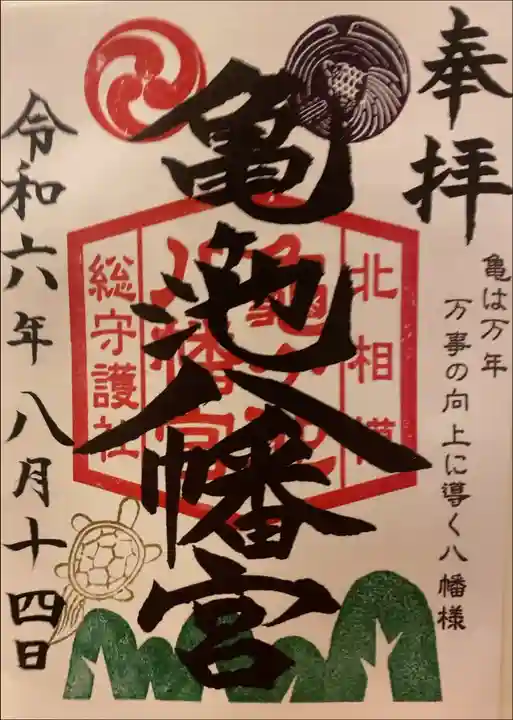 奉拝
亀は万年
万事の向上に導く八幡様
北相模
亀ヶ池
八幡宮
総守護社
亀池八幡宮
令和六年八月十四日